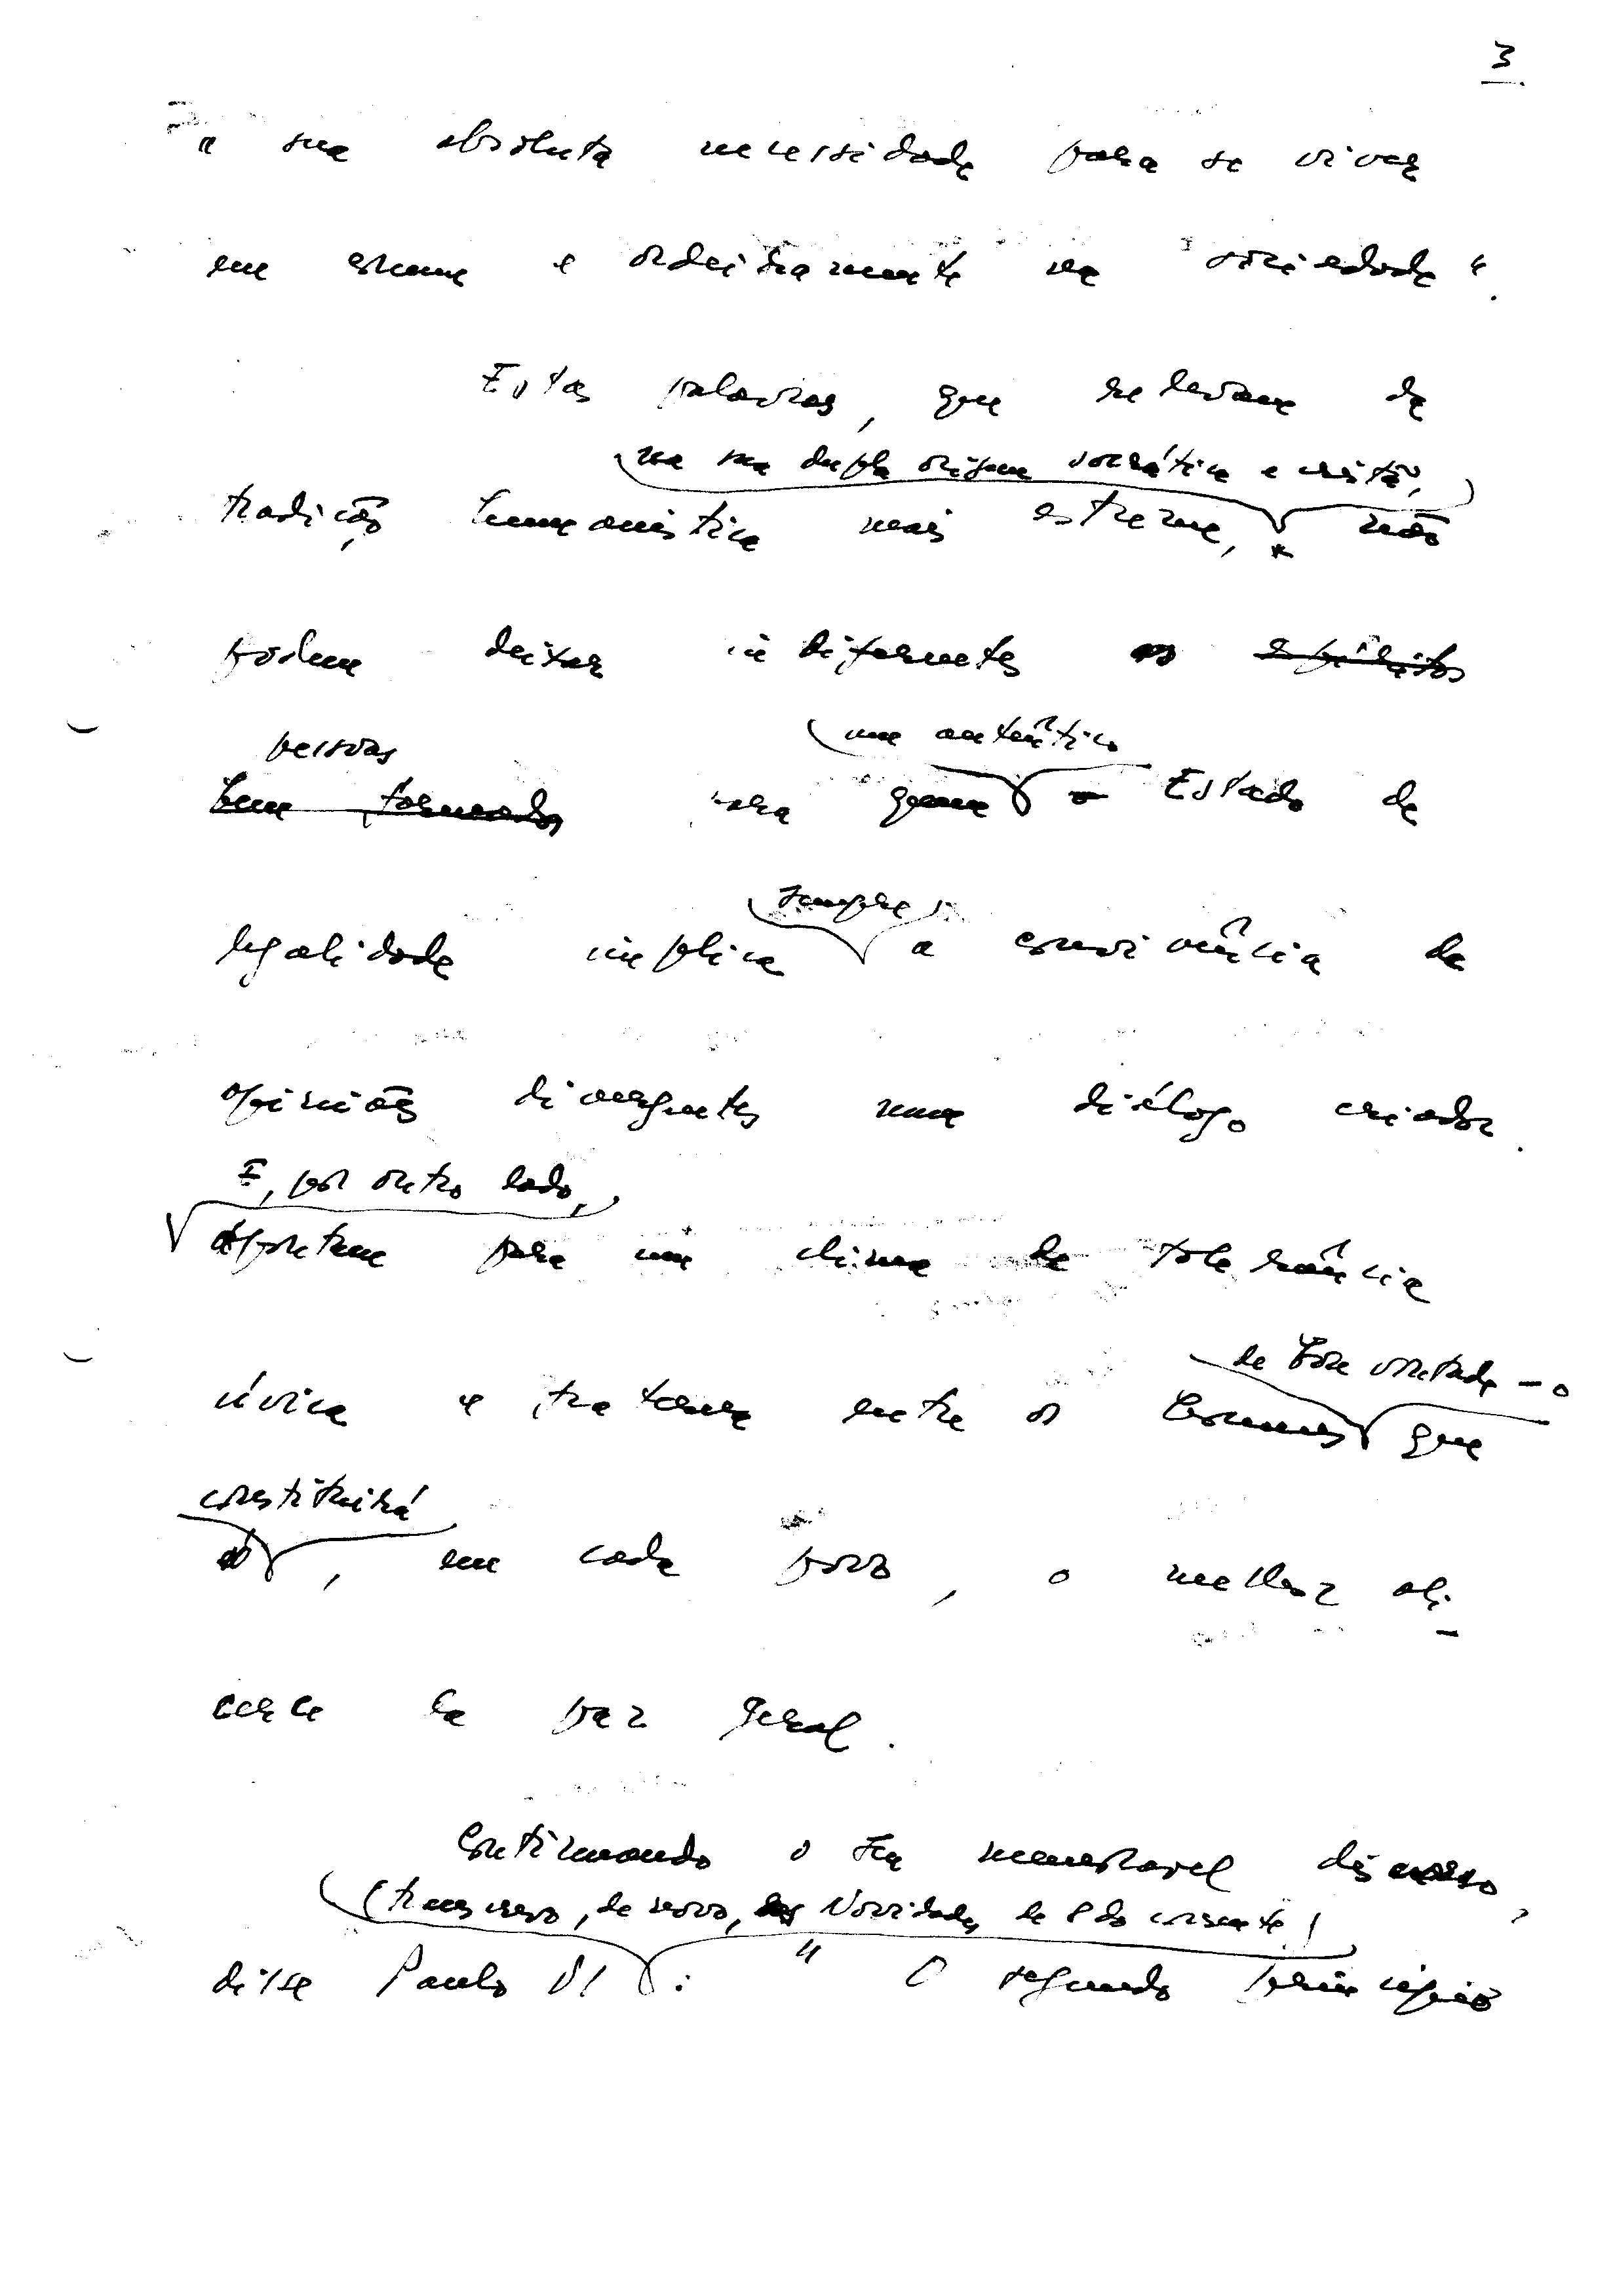 3
a sua absoluta necessidade para se viver
em comum e ordeiramente na sociedade".
Estas palavras, que relevam da
na sua dupla origem socrática e cristã,
tradição humanística mais estreme, * não
podem deixar indiferentes as espíritos
pessoas um autêntico
bem formados para quem o Estado de
sempre
legalidade implica a convivência de
opiniões divergentes num diálogo criador.
E, por outro lado,
apontam para um clima de tolerância
de boa vontade - o
cívica e fraterna entre os homens que
constituirá
é, em cada povo, o melhor ali-
cerce da paz geral.
Continuando o seu memorável discurso,
(transcrevo, de novo, das Novidades de 8 do corrente)
disse Paulo VI: "O segundo princípio